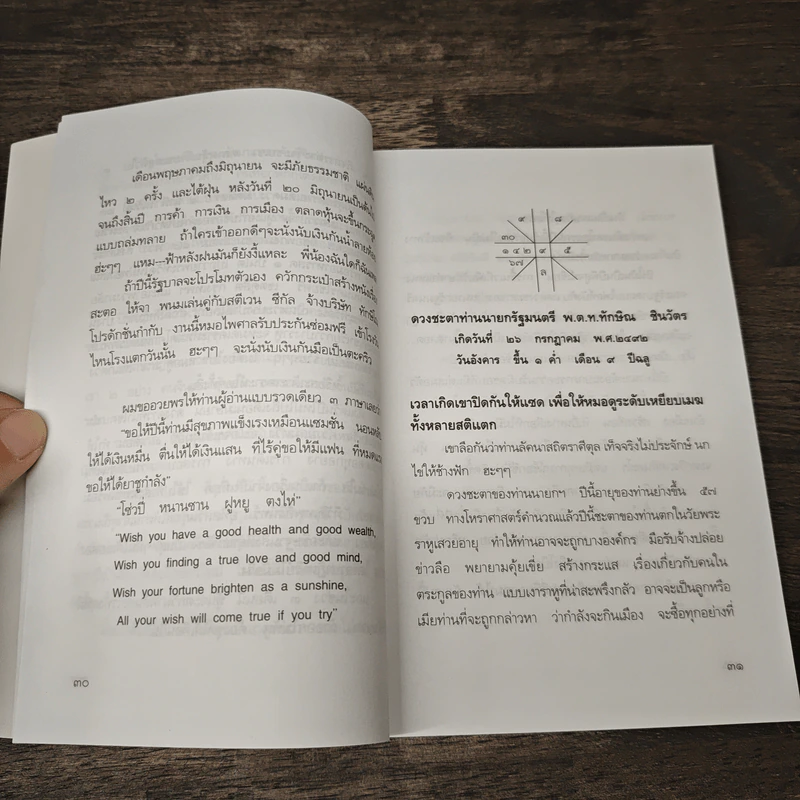 เดือนพฤษภาคมถึงมิถุนายน จะมีภัยธรรมชาติ แผ่นดิน
ไหว ๒ ครั้ง และไต้ฝุ่น หลังวันที่ ๒๐ มิถุนายนเป็น
จนถึงสิ้นปี การค้า การเงิน การเมือง ตลาดหุ้นจะขึ้น
แบบถล่มทลาย ถ้าใครเข้าออกดีๆจะนั่งนับเงินกันน้ำลาย
ฮ่ะๆๆ แหม---ฟ้าหลังฝนมันก็ยังงี้แหละ พี่น้องฉันใดก็ฉัน
ถ้าปีนี้รัฐบาลจะโปรโมทตัวเอง ควักกระเป๋าสร้างหนัง
สะตอ ให้จา พนมเล่นคู่กับสตีเวน ซีกัล จ้างบริษัท
โปรดักชั่นกำกับ งานนี้หมอไพศาลรับประกันซ่อมฟรี เข้า
ไหนโรงแตกวันนั้น ฮะๆๆ จะนั่งนับเงินกันมือเป็นตะคริว
ผมขออวยพรให้ท่านผู้อ่านแบบรวดเดียว ๓ ภาษาเลย
“ขอให้ปีนี้ท่านมีสุขภาพแข็งแรงเหมือนแซมซั่น นอน
ให้ได้เงินหมื่น ตื่นให้ได้เงินแสน ที่ไร้คู่ขอให้มีแฟน ที่
ขอให้ได้ยาชูกำลัง”
“โซ่วปี่ หนานซาน ฝูหยู ตงไห่”
“Wish you have a good health and good wealth,
Wish you finding a true love and good mind,
Wish your fortune brighten as a sunshine,
All your wish will come true if you try”
๓๐
๙ ๘
๓๐
๑ ๔ ๒ ๙ ๕
๖๗ ล
ดวงชะตาท่านนายกรัฐมนตรี พ.ต.ท.ทักษิณ ชินวัตร
เกิดวันที่ ๒๖ กรกฎาคม พ.ศ.๒๔๙๒
วันอังคาร ขึ้น ๑ ค่ำ เดือน ๙ ปีฉลู
เวลาเกิดเขาปิดกันให้แซด เพื่อให้หมอดูระดับเหยียบเมฆ
ทั้งหลายสติแตก
เขาลือกันว่าท่านลัคนาสถิตราศีตุล เท็จจริงไม่ประจักษ์ นก
ไข่ให้ช้างฟัก ฮะๆๆ
ดวงชะตาของท่านนายกฯ ปีนี้อายุของท่านย่างขึ้น ๕๗
ขวบ ทางโหราศาสตร์คำนวณแล้วปีนี้ชะตาของท่านตกในวัยพระ
ราหูเสวยอายุ ทำให้ท่านอาจจะถูกบางองค์กร มือรับจ้างปล่อย
ข่าวลือ พยายามคุ้ยเขี่ย สร้างกระแส เรื่องเกี่ยวกับคนใน
ตระกูลของท่าน แบบเงาราหูที่น่าสะพรึงกลัว อาจจะเป็นลูกหรือ
เมียท่านที่จะถูกกล่าวหา ว่ากำลังจะกินเมือง จะซื้อทุกอย่างที่
๓๑